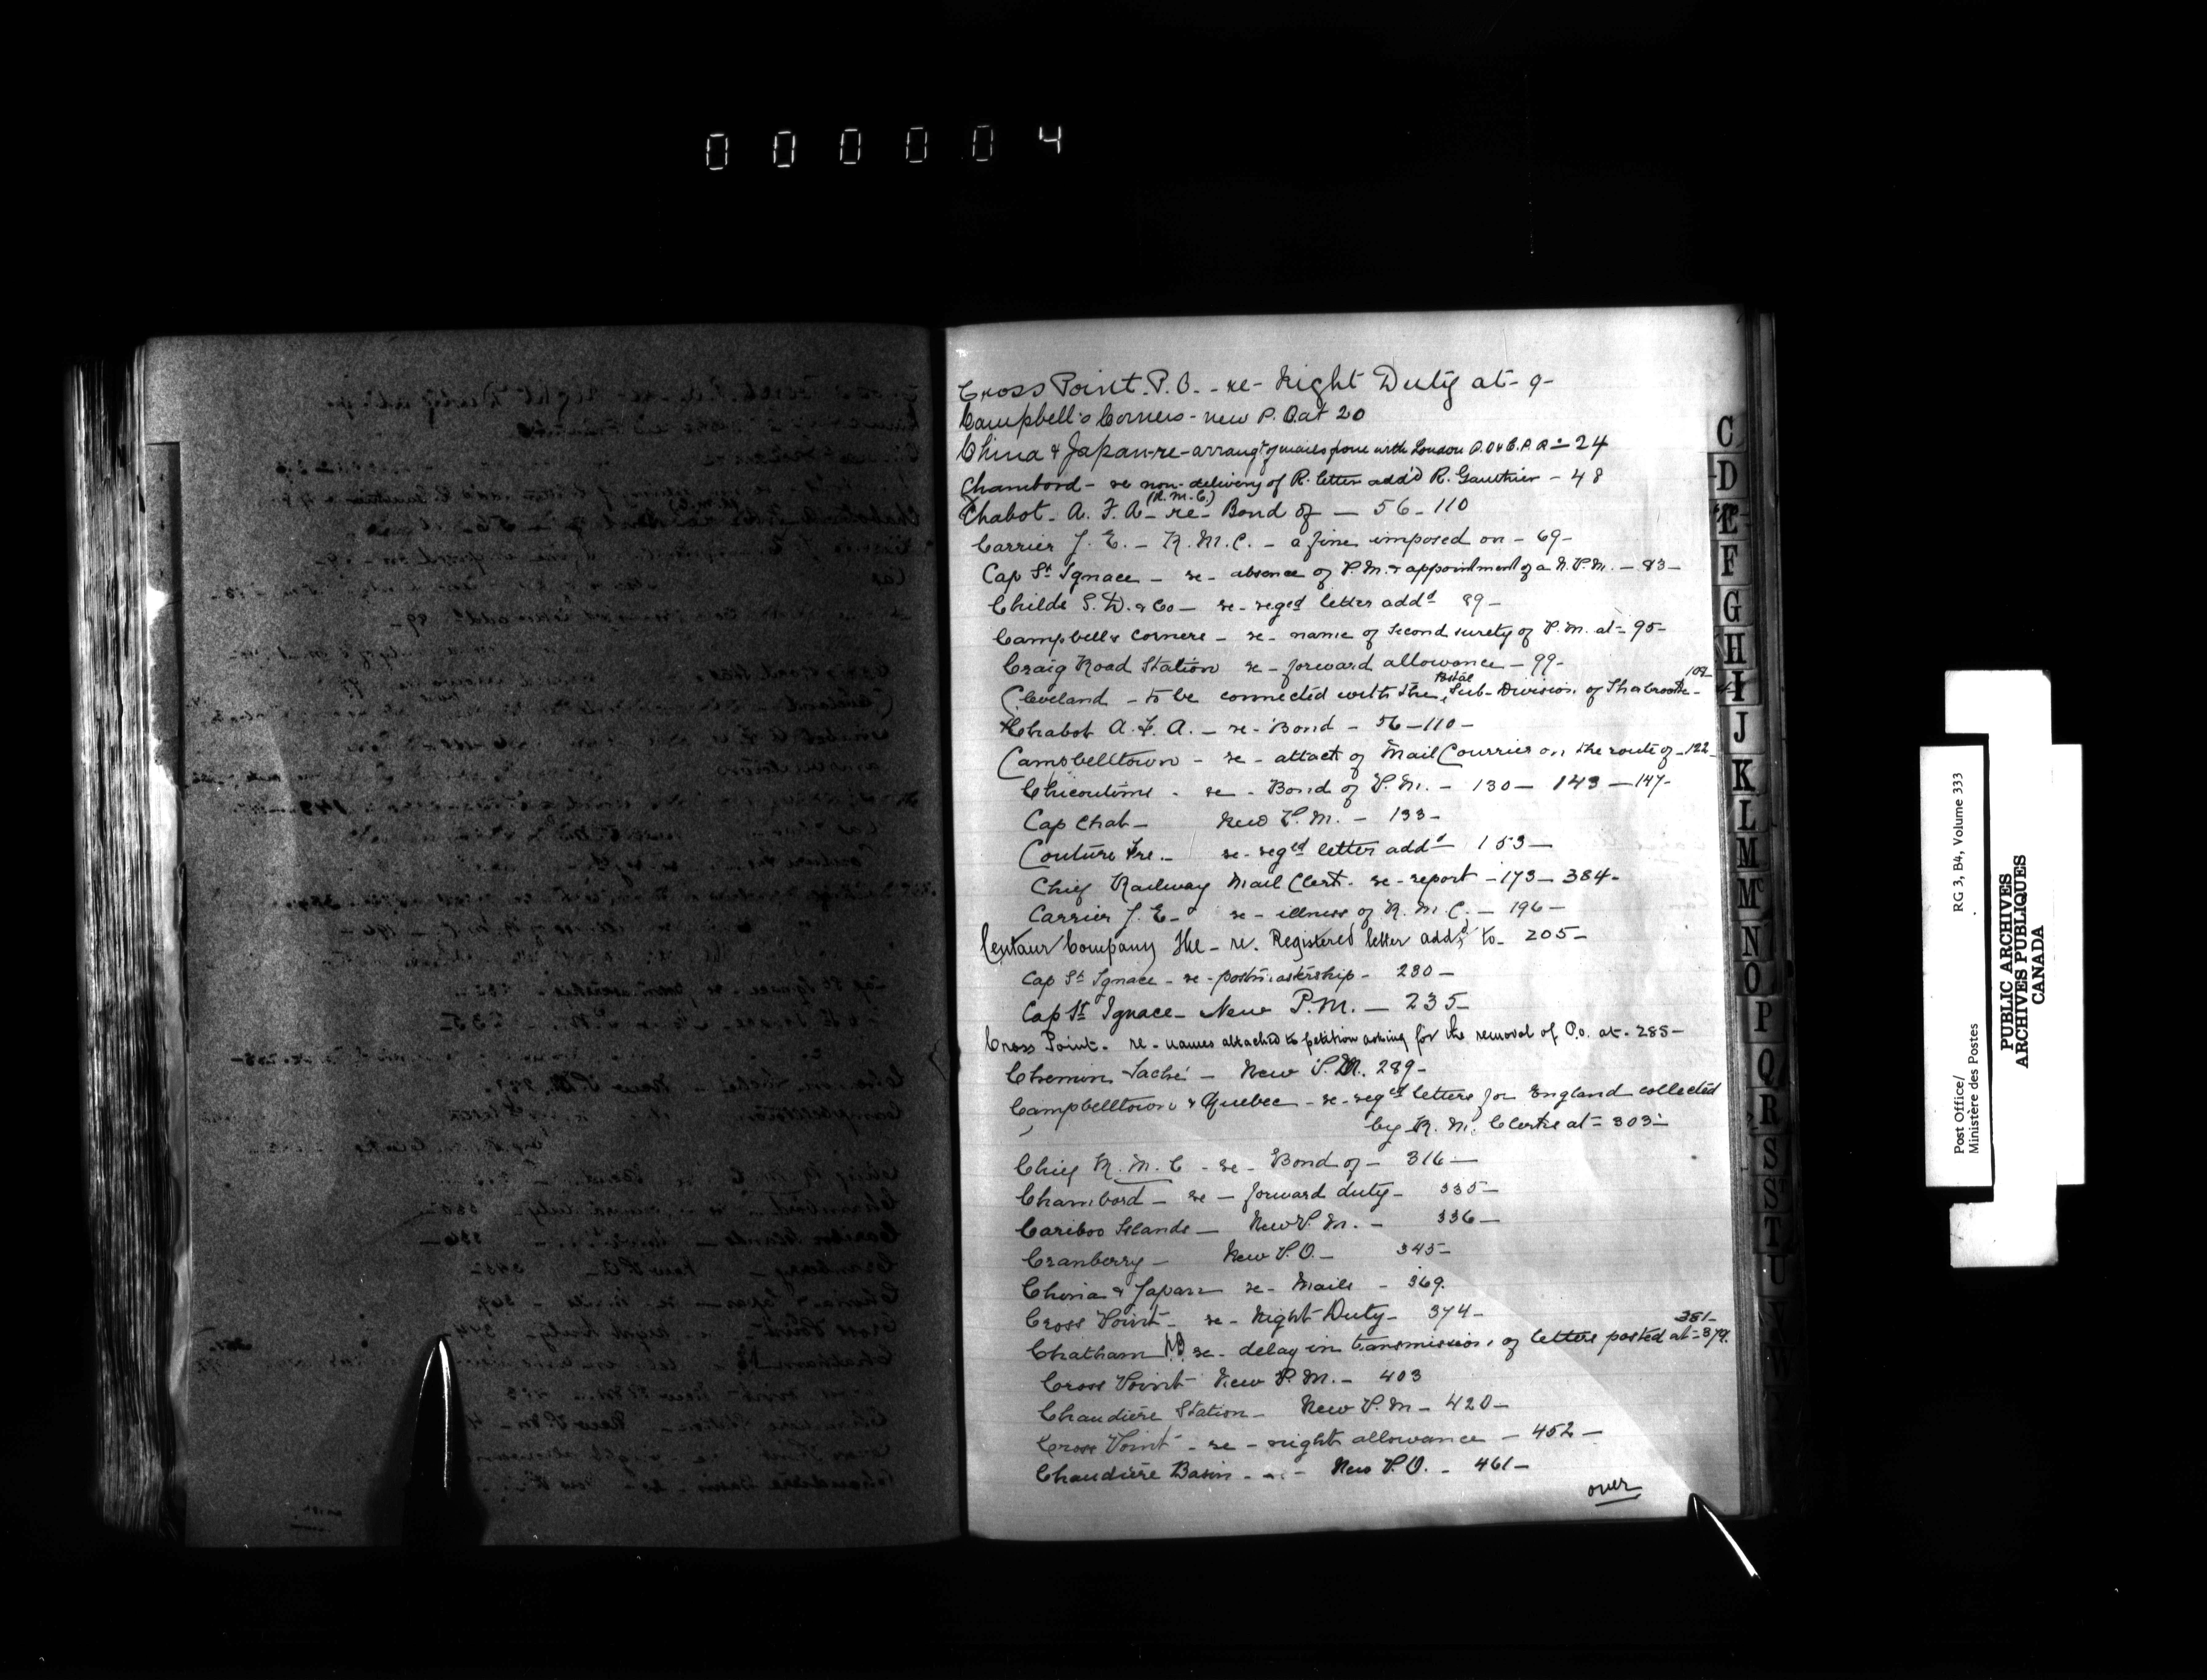 000004
Cross Point. P.O. - re - Night Duty at - 9 -
Campbell's Corners - new P.O. at 20
China & Japan - re - arrangt of mails from with London P.O. & C.P.R. - 24
Chambord - re non-delivery of R. letter add'd R. Gauthier - 48
(R.M.C.)
Chabot. A. F. A. - re - Bond of - 56 - 110
Carrier J. E. - R.M.C. - a fine imposed on - 69 -
Cap St Ignace - re - absence of P.M. & appointment of a N.P.M. - 83 -
Childs S. D. & Co - re - reged letter addd 89 -
Campbells Corners - re - name of second surety of P.M. at - 95 -
Craig Road Station re - forward allowance - 99 -
Cleveland - to be connected with the Postal Sub-Division of Sherbrooke - 102
Chabot A. F. A. - re - Bond - 56 - 110 -
Campbelltown - re - attact of Mail Courrier on the route of - 122 -
Chicoutimi - re - Bond of P.M. - 130 - 143 - 147 -
Cap Chat - New P.M. - 133 -
Couture Fre. - re - reged letter addd 153 -
Chief Railway Mail Clerk. re - report - 173 - 384 -
Carrier J. E. - re - illness of R.M.C. - 196 -
Centaur Company The - re. Registered letter addd to - 205 -
Cap St Ignace - re - postmastership - 230 -
Cap St Ignace - New P.M. - 235 -
Cross Point. re - names attached to petition asking for the removal of P.O. at - 285 -
Chemin Taché - New P.M. 289 -
Campbelltown & Quebec - re - reged letters for England collected
by R.M. Clerks at - 303 -
Chief R.M.C - re - Bond of - 316 -
Chambord - re - forward duty - 335 -
Cariboo Islands - New P.M. - 336 -
Cranberry - New P.O. - 345 -
China & Japan re - Mails - 369.
Cross Point - re - Night Duty - 374 -
381 -
Chatham N.B. re - delay in transmission of letters posted at - 379.
Cross Point New P.M. - 403
Chaudière Station - New P.M - 420 -
Cross Point - re - night allowance - 452 -
Chaudière Basin - New P.O. - 461 -
over
C
D
E
F
G
H
I
J
K
L
M
Mc
N
O
P
Q
R
S
St
T
U
V
W
Post Office/
Ministère des Postes
RG 3, B4, Volume 333
PUBLIC ARCHIVES
ARCHIVES PUBLIQUES
CANADA